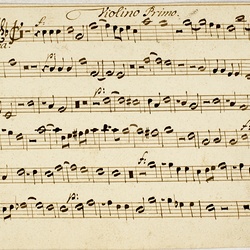 Violino Primo.
f.
p.
p:
f.